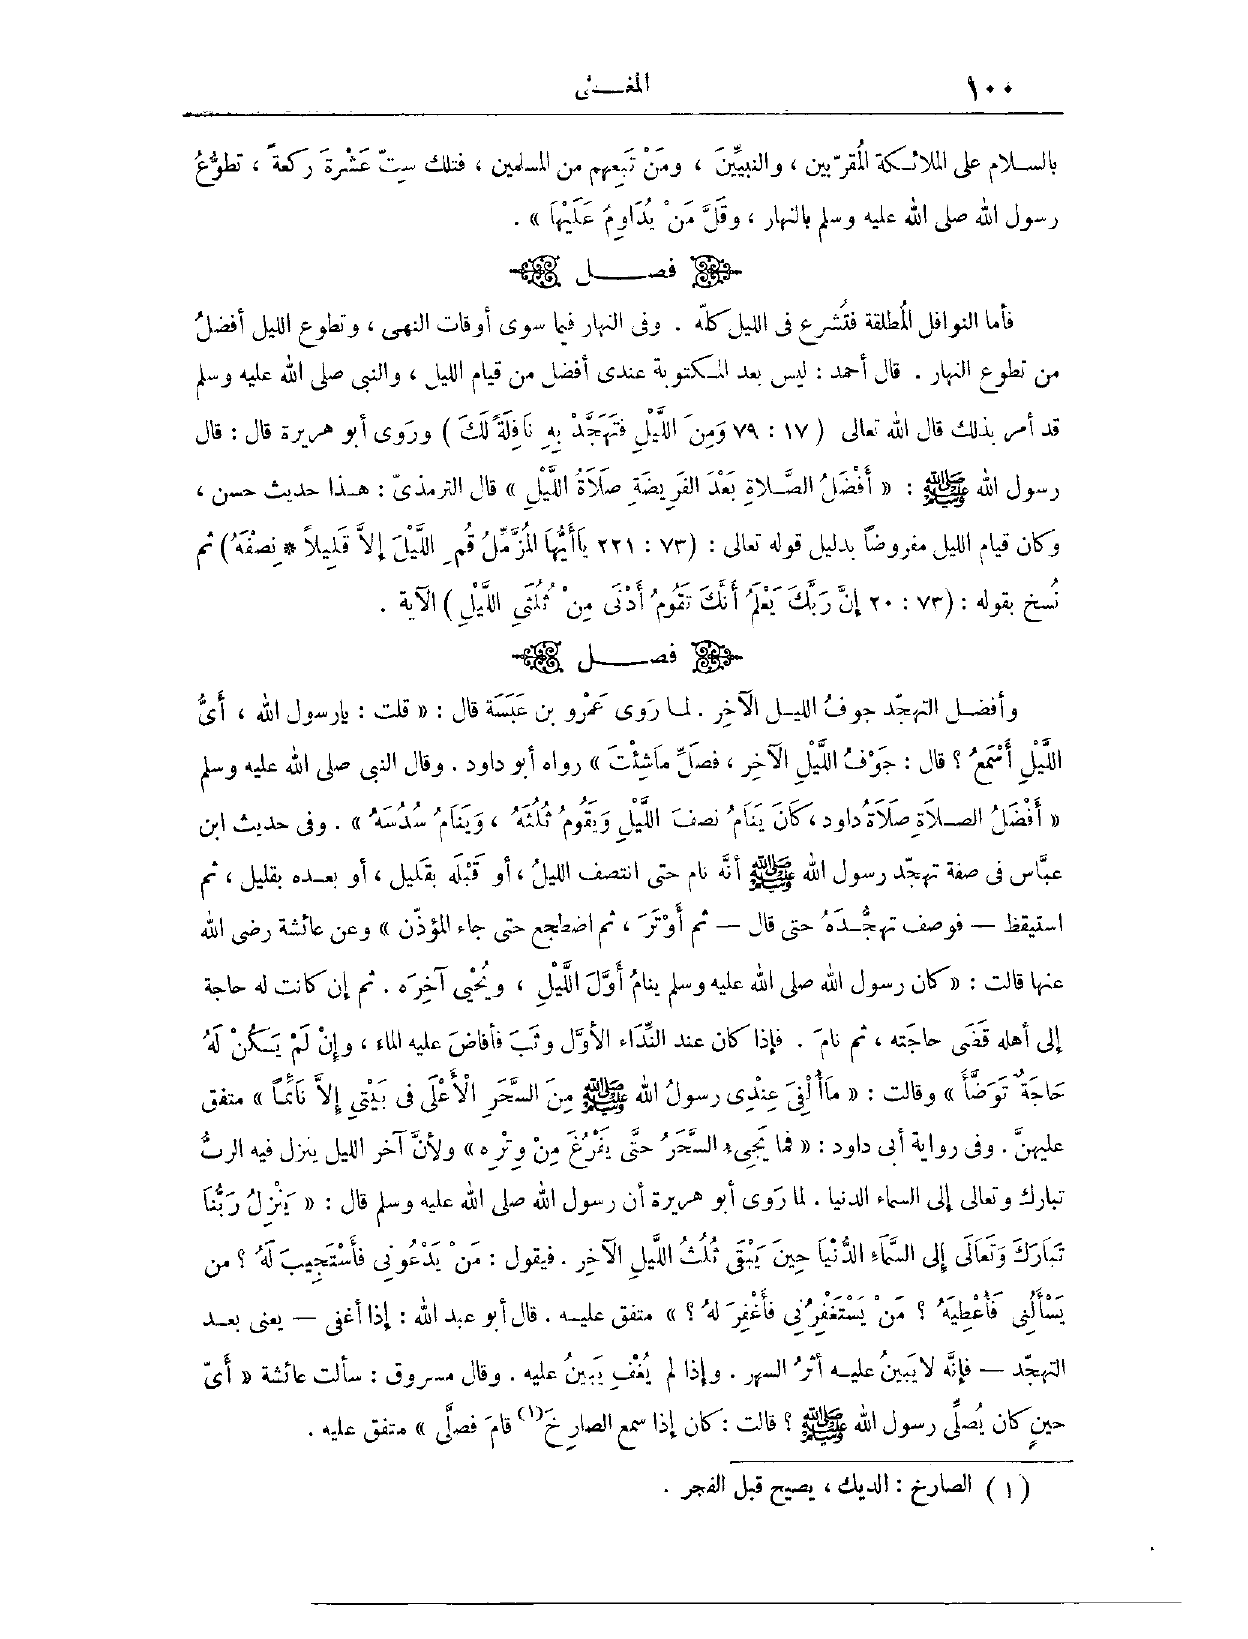 ١٠٠ المغـــنى
بالسـلام على الملائـكة المُقرّبين ، والنبيِّينَ ، ومَنْ تَبِعهم من المسلمين ، فتلك سِتّ عَشْرةَ ركعةً ، تطوُّعُ
رسول الله صلى الله عليه وسلم بالنهار ، وقَلَّ مَنْ يُدَاوِمُ عَلَيْهَا » .
فصــــل
فأما النوافل المُطلقة فتُشرع فى الليل كلّه . وفى النهار فيما سوى أوقات النهى ، وتطوع الليل أفضلُ
من تطوع النهار . قال أحمد : ليس بعد المـكتوبة عندى أفضل من قيام الليل ، والنبى صلى الله عليه وسلم
قد أمر بذلك قال الله تعالى ( ١٧ : ٧٩ وَمِنَ اللَّيْلِ فتَهَجَّدْ بِهِ نَافِلَةً لَكَ ) وروَى أبو هريرة قال : قال
رسول الله ﷺ : « أَفْضَلُ الصَّلاةِ بَعْدَ الفَرِيضَةِ صَلَاَةُ اللَّيْلِ » قال الترمذىّ : هـذا حديث حسن ،
وكان قيام الليل مفروضاً بدليل قوله تعالى : (٧٣ : ٢٢١ يَاأَيُّهَا المُزَّمِّلُ قُمِ اللَّيْلَ إِلاَّ قَلِيلاً * نِصفَهُ) ثم
نُسخ بقوله : (٧٣ : ٢٠ إِنَّ رَبَّكَ يَعْلَمُ أَنَّكَ تَقُومُ أَدْنَى مِنْ ثُلُثَىِ اللَّيْلِ ) الآية .
فصــــل
وأفضـل التهجّد جوفُ الليـل الآخِر . لمـا رَوى عَمْرو بن عَبَسَة قال : « قلت : يارسول الله ، أَىُّ
اللَّيْلِ أَسْمَعُ ؟ قال : جَوْفُ اللَّيْلِ الآخِر ، فصَلِّ ماَشِئْتَ » رواه أبو داود . وقال النبى صلى الله عليه وسلم
« أَفْضَلُ الصـلاَةِ صَلَاَةُ داود ، كَانَ يَنَامُ نصفَ اللَّيْلِ وَيَقُومُ ثُلُثَهُ ، وَيَنَامُ سُدُسَهُ » . وفى حديث ابن
عبَّاس فى صفة تهجّد رسول الله ﷺ أنَّه نام حتى انتصف الليلُ ، أو قَبْلَه بقَليل ، أو بعـده بقليل ، ثم
استيقظ — فوصف تهجُّـدَهُ حتى قال — ثم أَوْتَرَ ، ثم اضطجع حتى جاء المؤذّن » وعن عائشة رضى الله
عنها قالت : « كان رسول الله صلى الله عليه وسلم ينامُ أَوَّلَ اللَّيْلِ ، ويُحْيى آخِرَه . ثم إن كانت له حاجة
إلى أهله قَضَى حاجَته ، ثم نامَ . فإذا كان عند النِّدَاء الأوَّل وثَبَ فأفاضَ عليه الماء ، وإنْ لَمْ يَـكُنْ لَهُ
حَاجَةٌ تَوَضَّأَ » وقالت : « ماَأَلْفَى عِنْدِى رسولُ الله ﷺ مِنَ السَّحَرِ الْأَعْلَى فى بَيْتِى إلاَّ نَائِمًا » متفق
عليهنَّ . وفى رواية أبى داود : « فما يَجِىءُ السَّحَرُ حتَّى يَفْرُغَ مِنْ وِتْرِه » ولأنَّ آخر الليل ينزل فيه الربُّ
تبارك وتعالى إلى السماء الدنيا . لما رَوى أبو هريرة أن رسول الله صلى الله عليه وسلم قال : « يَنْزِلُ رَبُّنَا
تَبَارَكَ وَتَعَالَى إلى السَّمَاء الدُّنْيَا حِينَ يَبْقَى ثُلُثُ اللَّيلِ الآخِر . فيقول : مَنْ يَدْعُونِى فأَسْتَجِيبَ لَهُ ؟ من
يَسْأَلُنِى فَأُعْطِيَهُ ؟ مَنْ يَسْتَغْفِرُنِى فأَغْفِرَ لهُ ؟ » متفق عليـه . قال أبو عبد الله : إذا أغفى — يعنى بعـد
التهجّد — فإنَّه لا يَبينُ عليـه أثرُ السهر . وإذا لم يُغْفِ يَبينُ عليه . وقال مسروق : سألت عائشة « أَىّ
حينٍ كان يُصلِّى رسول الله ﷺ ؟ قالت : كان إذا سمع الصارِخَ(١) قامَ فصلَّى » متفق عليه .
( ١ ) الصارخ : الديك ، يصيح قبل الفجر .